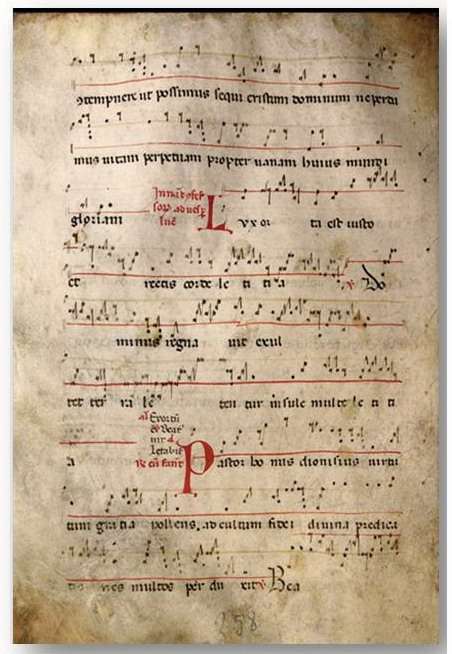 ↄtempnere ut possimus sequi cristum dominum ne perda
mus uitam perpetuam propter uanam huius mundi
gloriam Lux or ta est iusto
et rectis corde le ti ti a ℣ Do
minus regna uit exul
tet ter ra le ten tur insule multe le ti ti
a Pastor bo nus dionisius uirtu
tum gratia pollens ad cultum fidei diuina predica
multos per du xit ℣ Bea
258